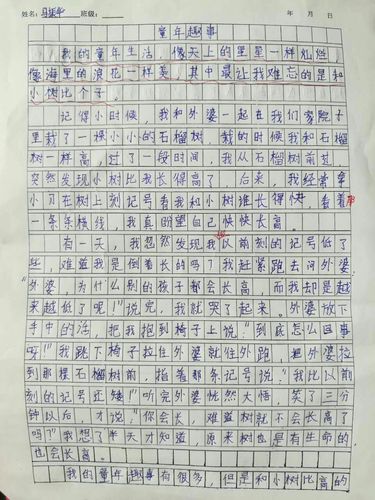 姓名：马 华 班级： 年 月 日
童年趣事
我的童年生活，像天上的星星一样灿烂，
像海里的浪花一样美，其中最让我难忘的是和
小树比个子。
记得小时候，我和外婆一起在我们家院子
里栽了一棵小小的石榴树，栽的时候我和石榴
树一样高，过了一段时间，我从石榴树前过，
突然发现小树比我长得高了 后来，我经常拿
小刀在树上刻记号看我和小树谁长得快，看着
一条条横线，我真期望自己快快长高。
有一天，我忽然发现我以前刻的记号低了
些，难道我是倒着长的吗？我赶紧跑去问外婆
“外婆，为什么别的孩子都会长高，而我却是越
来越低了呢！”说完，我就哭了起来。外婆放下
手中的活，把我抱到椅子上说：“到底怎么回事
呀！”我跳下椅子拉住外婆就往外跑， 外婆拉
到那棵石榴树前，指着那条记号说：“我比以前
刻的记号还矮！”听完外婆恍然大悟，笑了三分
钟以后，才说：“你会长，难道树就不会长高了
吗？”我想了半天才知道，原来树也是有生命的
也会长高。
我的童年趣事有很多，但是和小树比高的